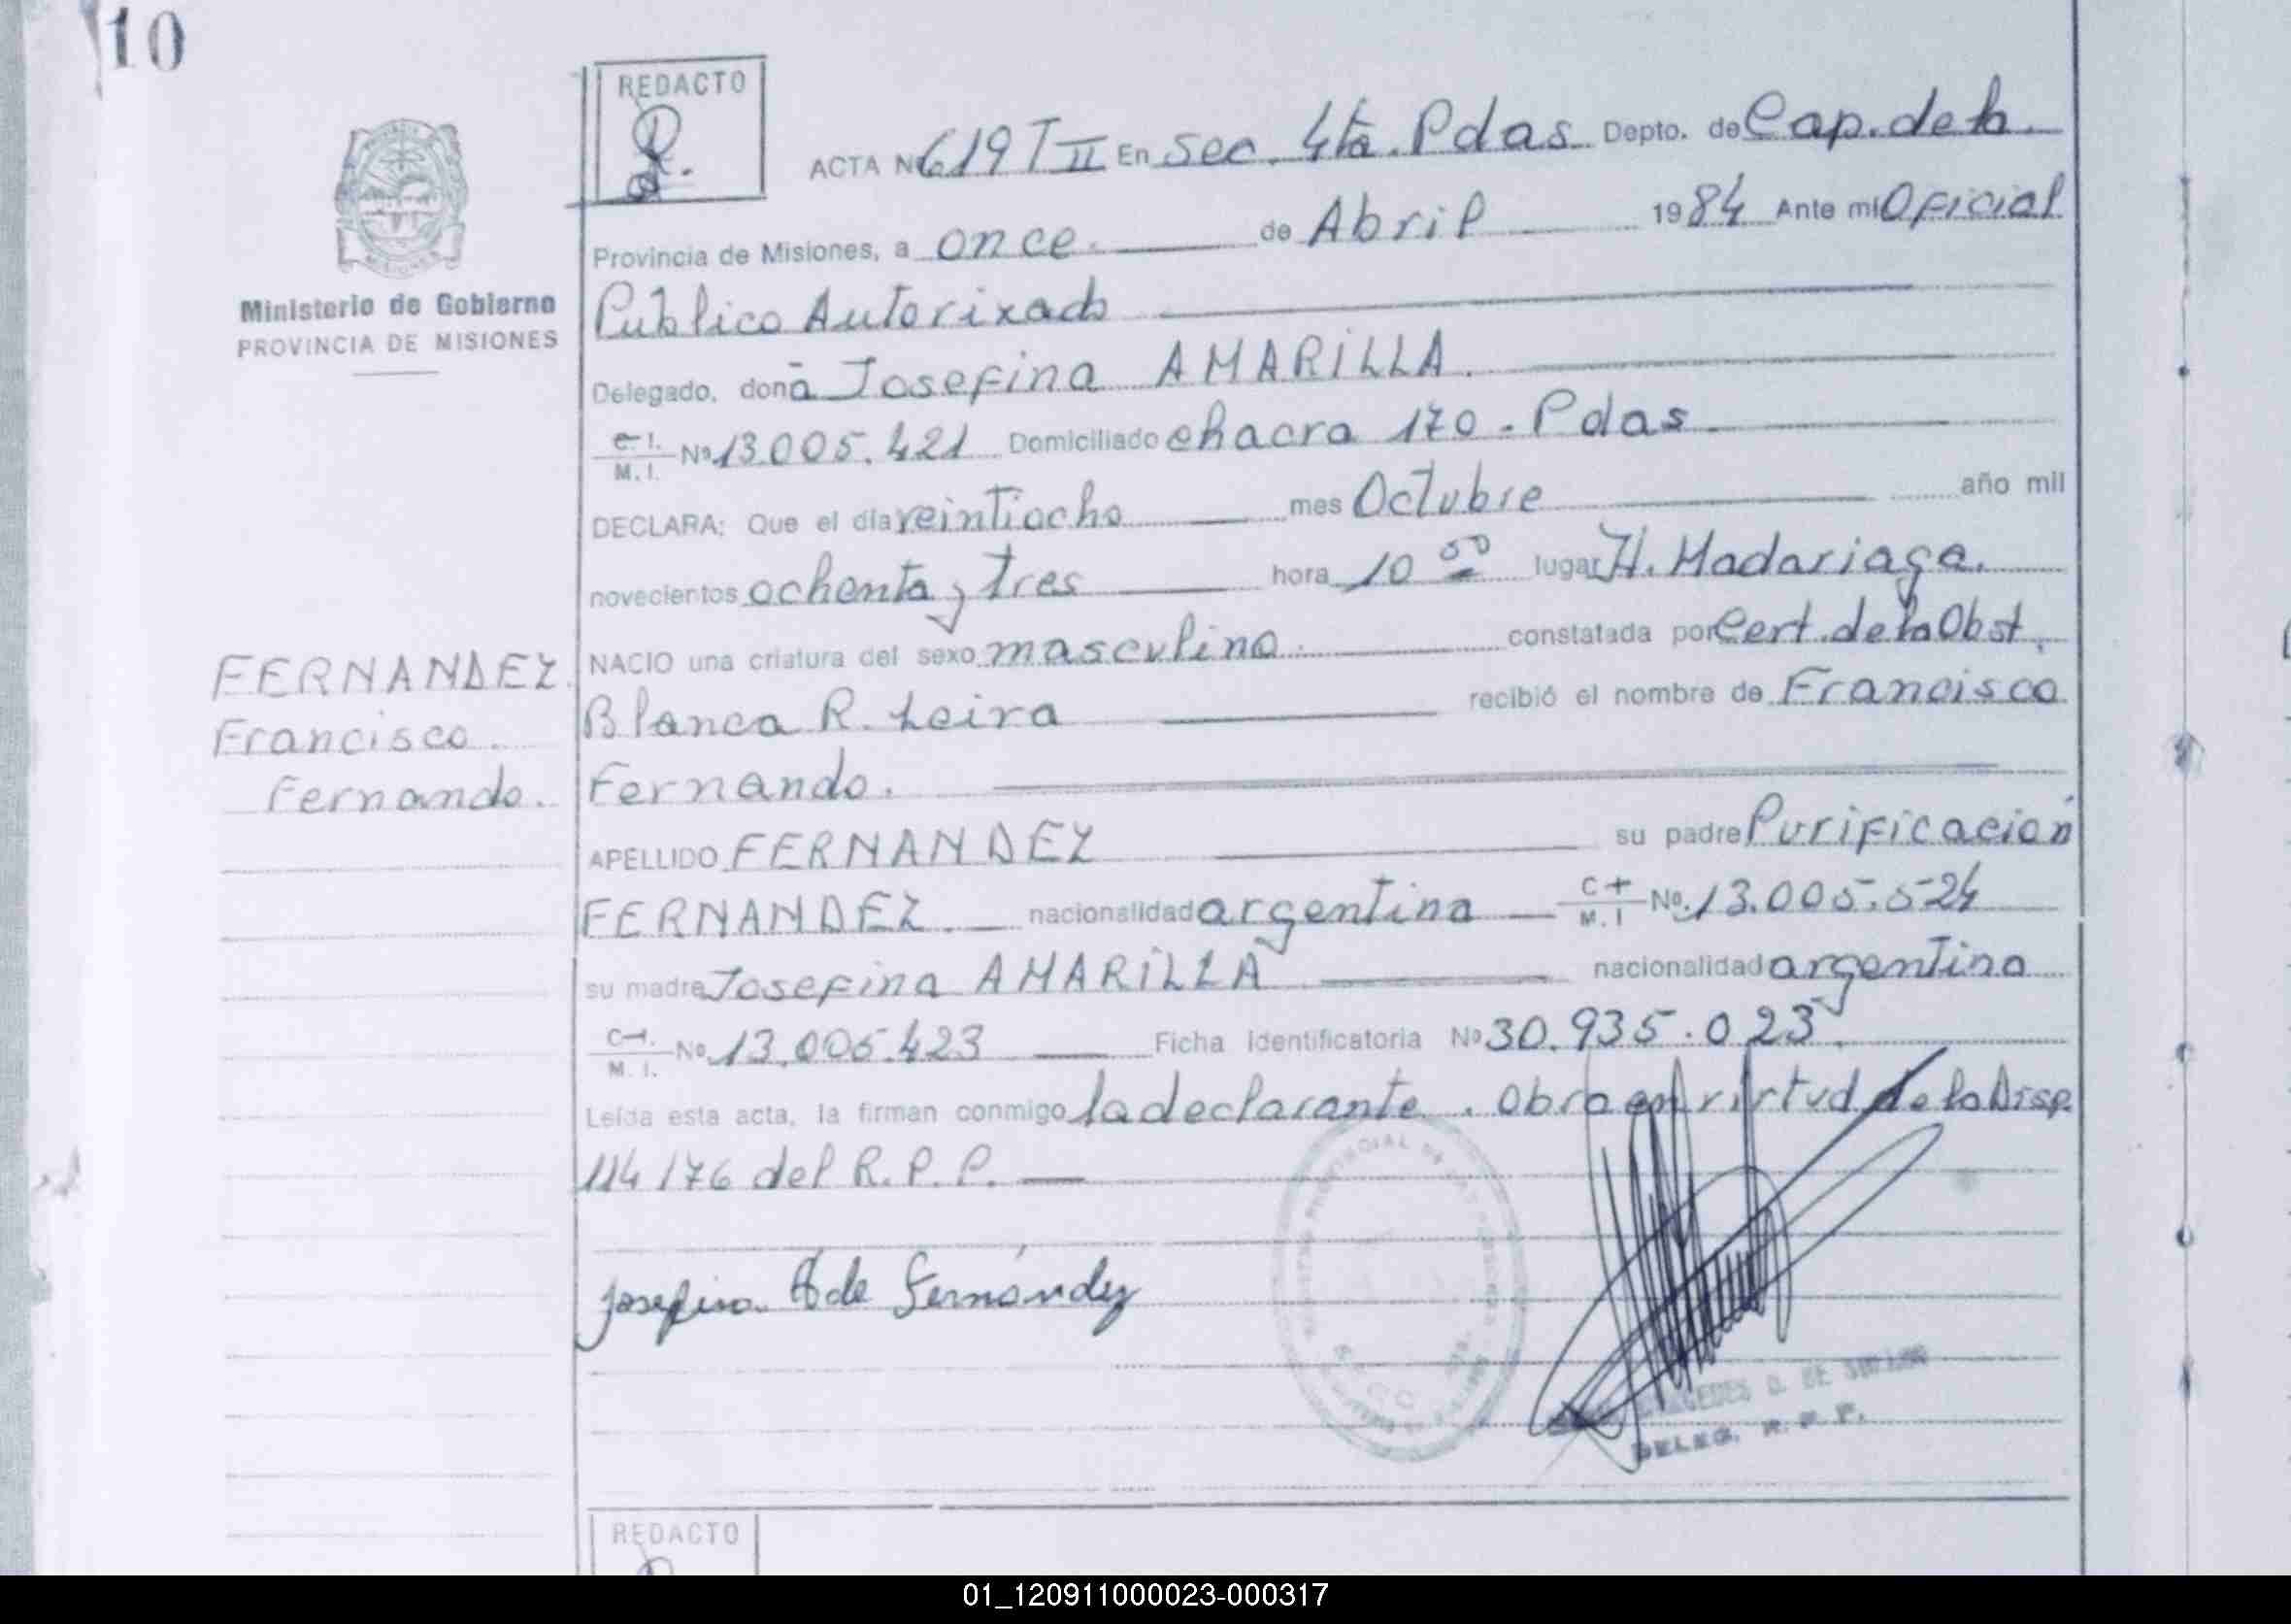 10
REDACTO
ACTA Nº 619 T II En Sec. 4ta. Pdas Depto. de Cap. de la
Provincia de Misiones, a once. de Abril 1984 Ante mi Oficial
Ministerio de Gobierno
PROVINCIA DE MISIONES
Público Autorizado
Delegado, doña Josefina AMARILLA.
C. I. M. I. Nº 13.005.421 Domiciliado chacra 170 - Pdas
DECLARA: Que el día veintiocho mes Octubre año mil
novecientos ochenta y tres hora 10 50 lugar H. Madariaga.
NACIO una criatura del sexo masculino. constatada por Cert. de la Obst.
Blanca R. Leira recibió el nombre de Francisco
Fernando.
FERNANDEZ
Francisco.
Fernando.
APELLIDO FERNANDEZ su padre Purificación
FERNANDEZ. nacionalidad argentina C I M. I Nº 13.005.524
su madre Josefina AMARILLA nacionalidad argentina
C I. M. I. Nº 13.005.423 Ficha Identificatoria Nº 30.935.023.
Leída esta acta, la firman conmigo la declarante. Obra en virtud de la Disp.
114/76 del R.P.P.
Josefina A de Fernández
DELEG. R. P. P.
REDACTO
01_120911000023-000317